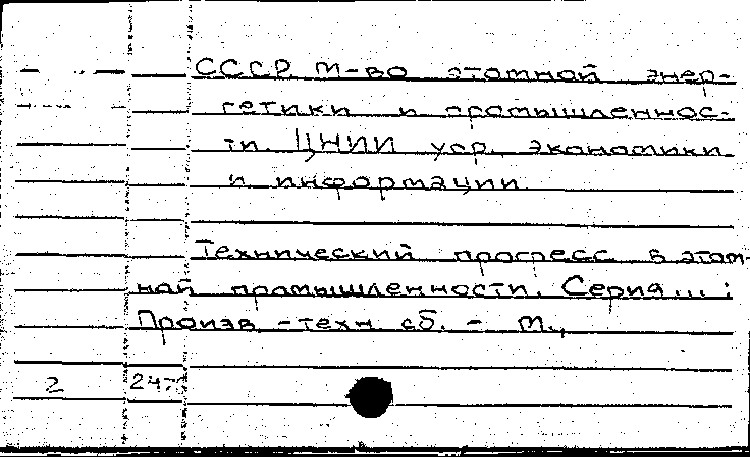 СССР. М-во атомной энер-
гетики и промышленнос-
ти. ЦНИИ упр., экономики
и информации.
Технический прогресс в атом-
ной промышленности. Серия... :
Произв.-техн. сб. - М.,
2